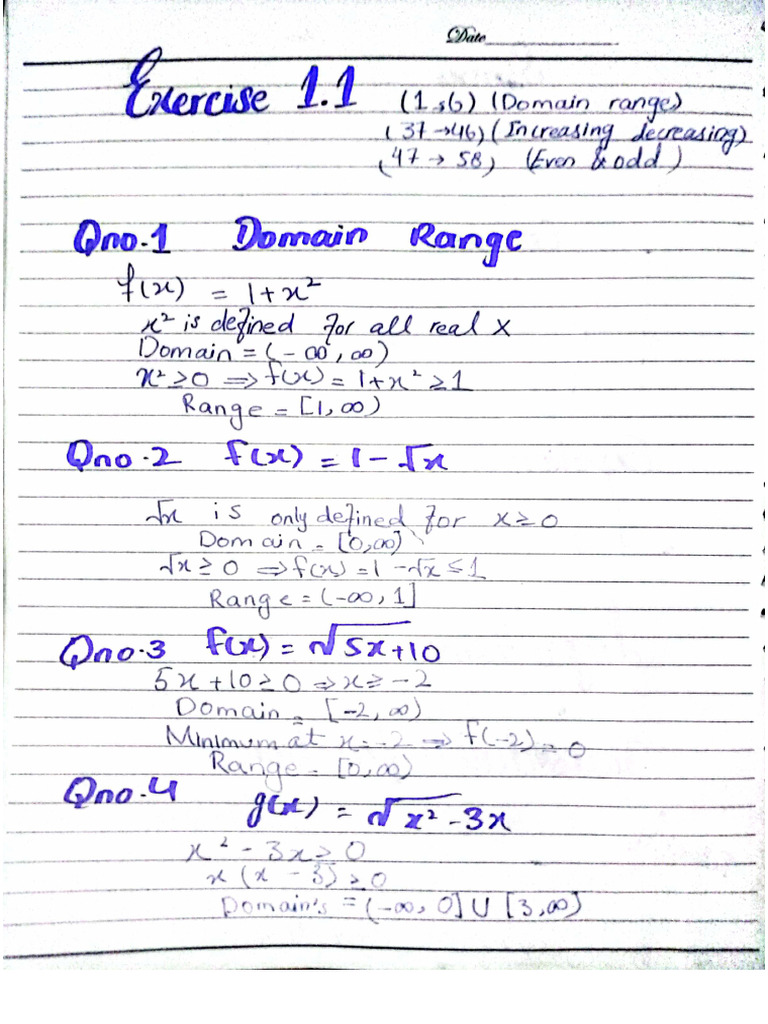 Date
Exercise 1.1 (1,6) (Domain range)
(37→46) (Increasing decreasing)
(47 → 58) (Even & odd)
Qno.1 Domain Range
f(x) = 1+x²
x² is defined for all real x
Domain = (-∞, ∞)
x² ≥ 0 ⇒ f(x) = 1+x² ≥ 1
Range = [1, ∞)
Qno.2 f(x) = 1 - √x
√x is only defined for x ≥ 0
Domain = [0, ∞)
√x ≥ 0 ⇒ f(x) = 1 - √x ≤ 1
Range = (-∞, 1]
Qno.3 f(x) = √5x+10
5x + 10 ≥ 0 ⇒ x ≥ -2
Domain = [-2, ∞)
Minimum at x = -2 ⇒ f(-2) = 0
Range = [0, ∞)
Qno.4 g(x) = √x² - 3x
x² - 3x ≥ 0
x (x - 3) ≥ 0
Domain's = (-∞, 0] U [3, ∞)